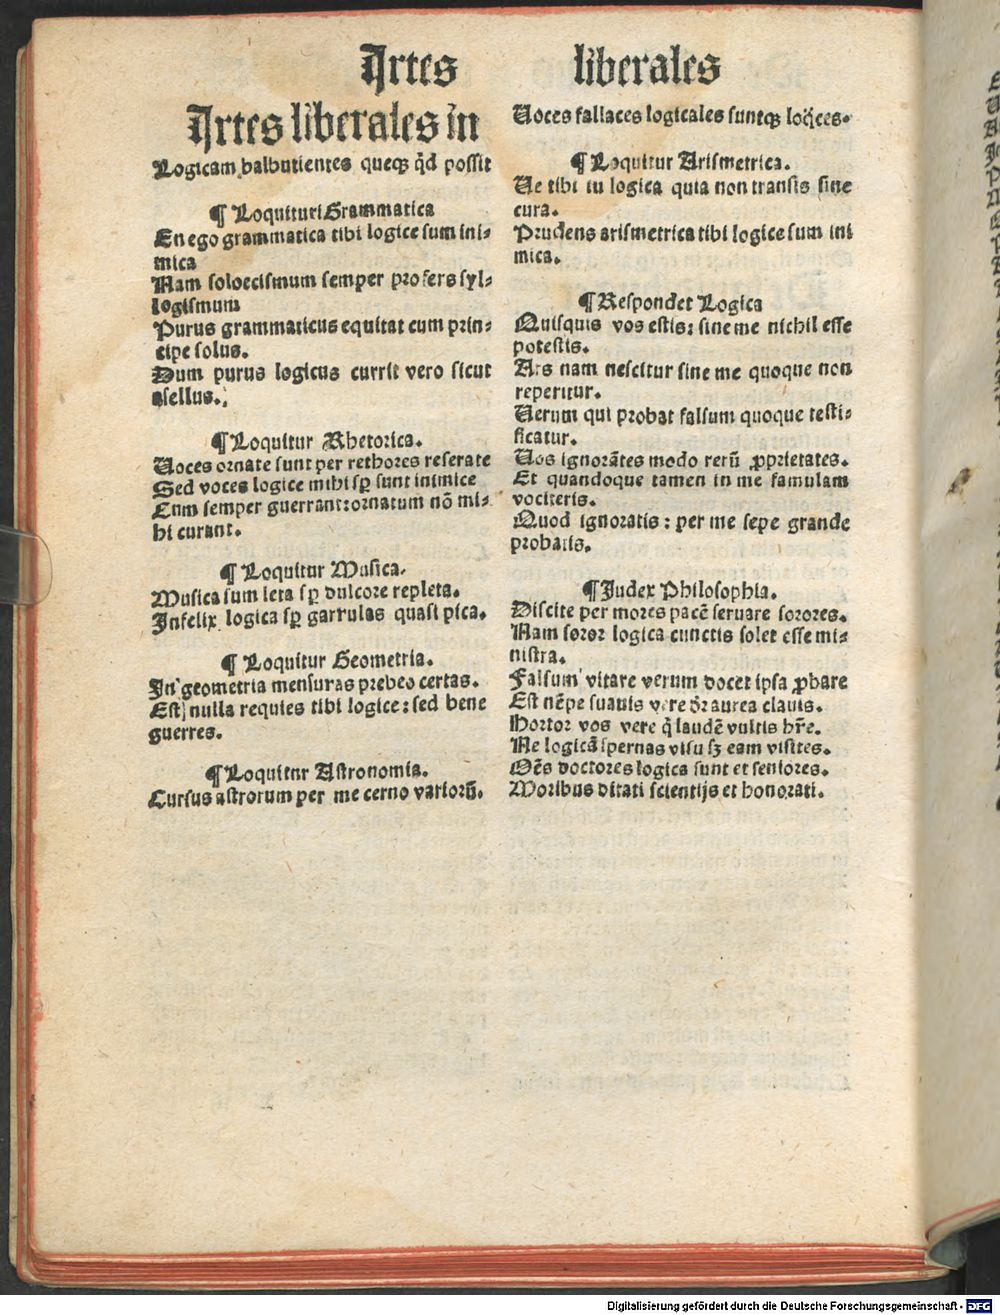 Artes liberales
Artes liberales in
Logicam balbutientes queqꝫ qd̄ possit
¶ Loquitur Grammatica
En ego grammatica tibi logice sum ini⸗
mica
Nam soloecismum semper profers syl⸗
logismum
Purus grammaticus equitat cum prin⸗
cipe solus.
Dum purus logicus currit vero sicut
asellus.
¶ Loquitur Rhetorica.
Uoces ornate sunt per rethores reserate
Sed voces logice mihi sꝑ sunt inimice
Cum semper guerrant: ornatum nō mi⸗
hi curant.
¶ Loquitur Musica.
Musica sum leta sꝑ dulcore repleta.
Infelix logica sꝑ garrulas quasi pica.
¶ Loquitur Geometria.
In geometria mensuras prebeo certas.
Est nulla requies tibi logice: sed bene
guerres.
¶ Loquitur Astronomia.
Cursus astrorum per me cerno variorū.
Uoces fallaces logicales suntqꝫ loq̄ces.
¶ Loquitur Arismetrica.
Ue tibi tu logica quia non transis sine
cura.
Prudens arismetrica tibi logice sum ini
mica.
¶ Respondet Logica
Quisquis vos estis: sine me nichil esse
potestis.
Ars nam nescitur sine me quoque non
reperitur.
Uerum qui probat falsum quoque testi⸗
ficatur.
Uos ignorātes modo rerū ꝓprietates.
Et quandoque tamen in me famulam
vociteris.
Quod ignoratis: per me sepe grande
probatis.
¶ Judex Philosophia.
Discite per mores pacē seruare sorores.
Nam soror logica cunctis solet esse mi⸗
nistra.
Falsum vitare verum docet ipsa ꝓbare
Est nēpe suauis vere dr̄ aurea clauis.
Hortor vos vere q̄ laudē vultis hr̄e.
Ne logicā spernas visu sꝫ eam visites.
Oēs doctores logica sunt et seniores.
Moribus ditati scientijs et honorati.
Digitalisierung gefördert durch die Deutsche Forschungsgemeinschaft - DFG